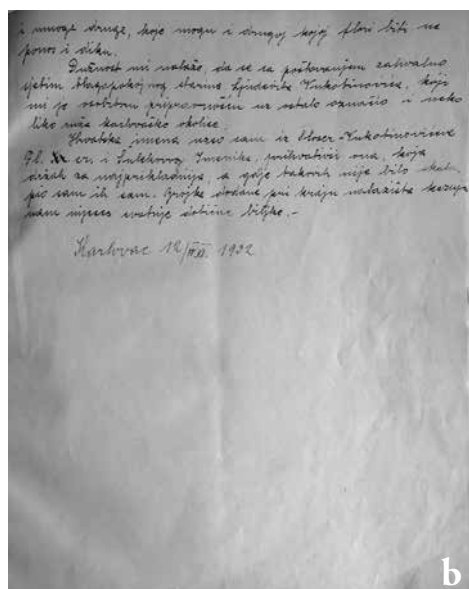 i mnoge druge, koje mogu i drugoj kojoj flori biti na
ponos i diku.
Dužnost mi nalaže, da se sa poštovanjem zahvalno
sjetim blagopokojnog starine Ljudevita Vukotinovića, koji
mi je osobitom pripravnošću uz ostalo označio i neko
liko ruža karlovačke okolice.
Hrvatska imena uzeo sam iz Šloser-Vukotinovićeve
Fl. er. i Šulekovog Imenika, prihvativši ona, koja
držah za najprikladnija, a gdje takovih nije bilo
sam ih sam. Brojke dodane pri kraju nalazišta kazuju
nam mjesec cvatnje dotične biljke.-
Karlovac 12/ 1922
b